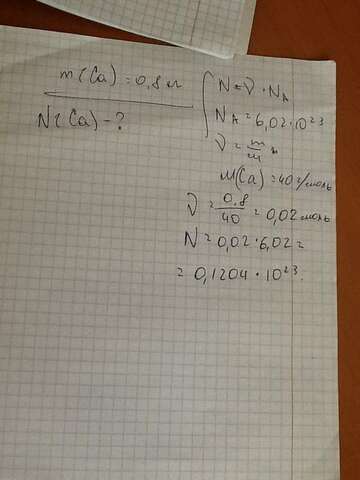 m(Ca) = 0,8 г
N(Ca) - ?
N = ν · N_A
N_A = 6,02 · 10²³
ν = m/M
M(Ca) = 40 г/моль
ν = 0,8/40 = 0,02 моль
N = 0,02 · 6,02 =
= 0,1204 · 10²³